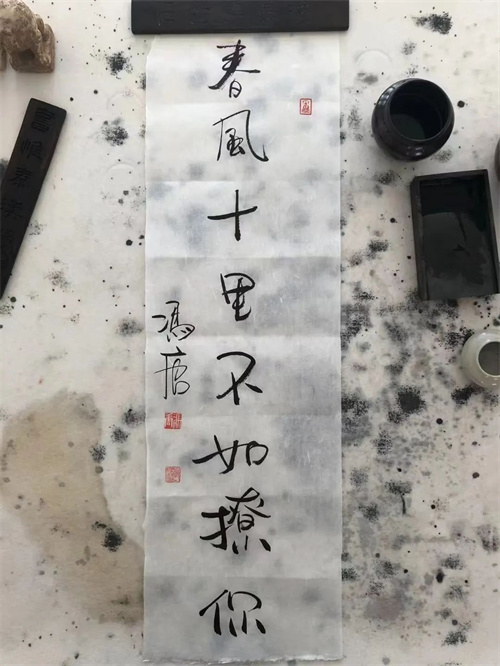 春風十里不如撩你
馮唐